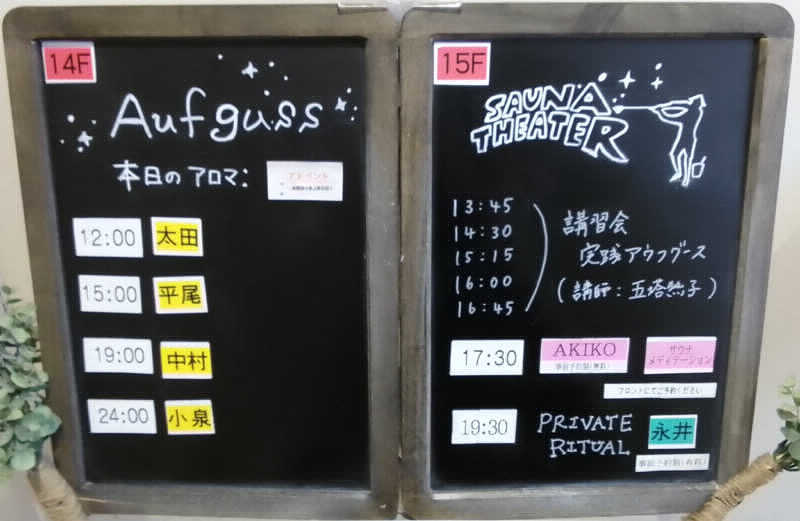 14F
Aufguss
本日のアロマ:
12:00 太田
15:00 平尾
19:00 中村
24:00 小泉
15F
SAUNA
THEATER
13:45
14:30
15:15
16:00
16:45
講習会
実践アウフグース
(講師:五塔熱子)
17:30 AKIKO サウナ
メディテーション
事前予約制(無料)
フロントにてご予約ください
19:30 PRIVATE
RITUAL 永井
事前予約制(有料)